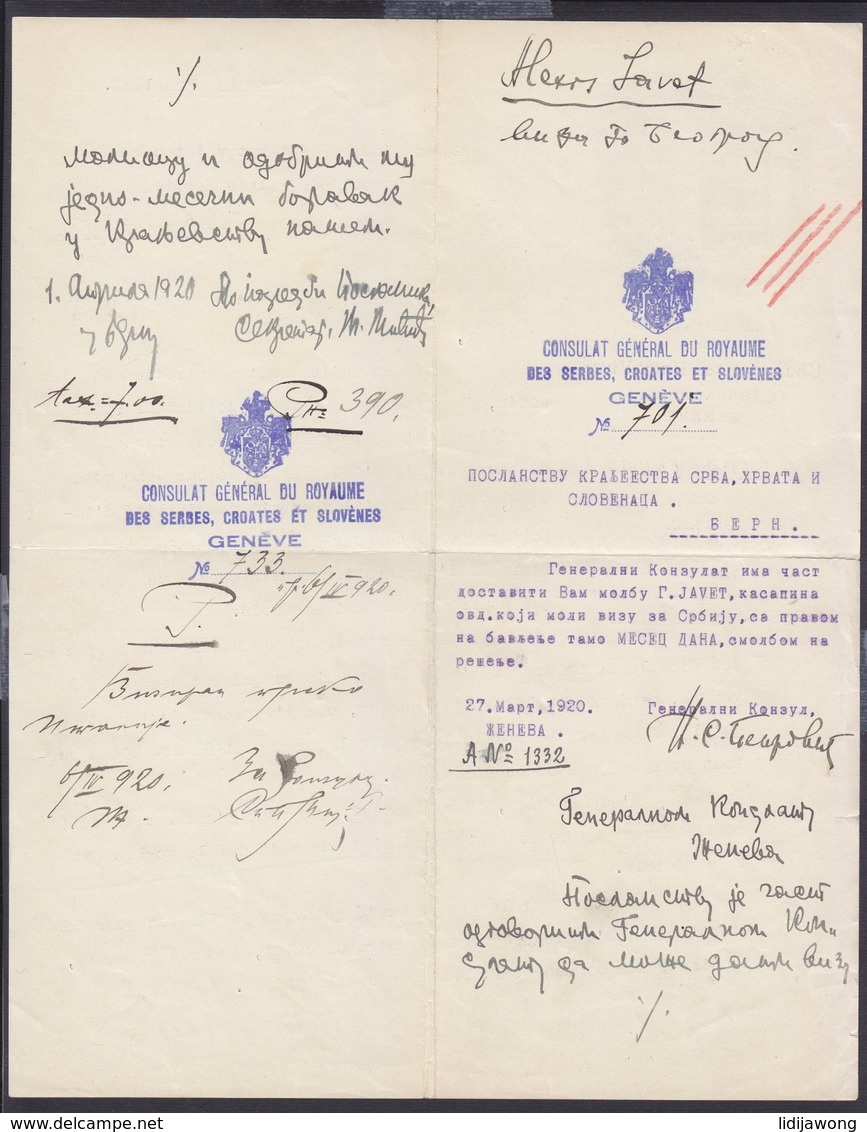 Alexis Javet
виза за Београд.
CONSULAT GÉNÉRAL DU ROYAUME
DES SERBES, CROATES ET SLOVÈNES
GENÈVE
№ 701.
ПОСЛАНСТВУ КРАЉЕЕСТВА СРБА, ХРВАТА И
СЛОВЕНАЦА .
БЕРН.
Генерални Конзулат има част
доставити Вам молбу Г. JAVET, касапина
овд. који моли визу за Србију, са правом
на бављење тамо МЕСЕЦ ДАНА, смолбом на
решење.
27. Март, 1920. Генерални Конзул,
ЖЕНЕВА .
A № 1332
Генералном Конзулату
Женева
Посланству је част
одговорити Генералном Кон-
зулату да може дати визу
·/.
·/.
молиоцу и одобрити му
једно-месечни боравак
у Краљевству нашем.
1. Априла 1920 По наредби Посланика,
у Берну Секретар,
tax. = 7.00. № 390.
CONSULAT GÉNÉRAL DU ROYAUME
DES SERBES, CROATES ET SLOVÈNES
GENÈVE
№ 733.
6/IV 920.
Визирал преко
Италије.
6/IV 920. За Конзула
lidijawong